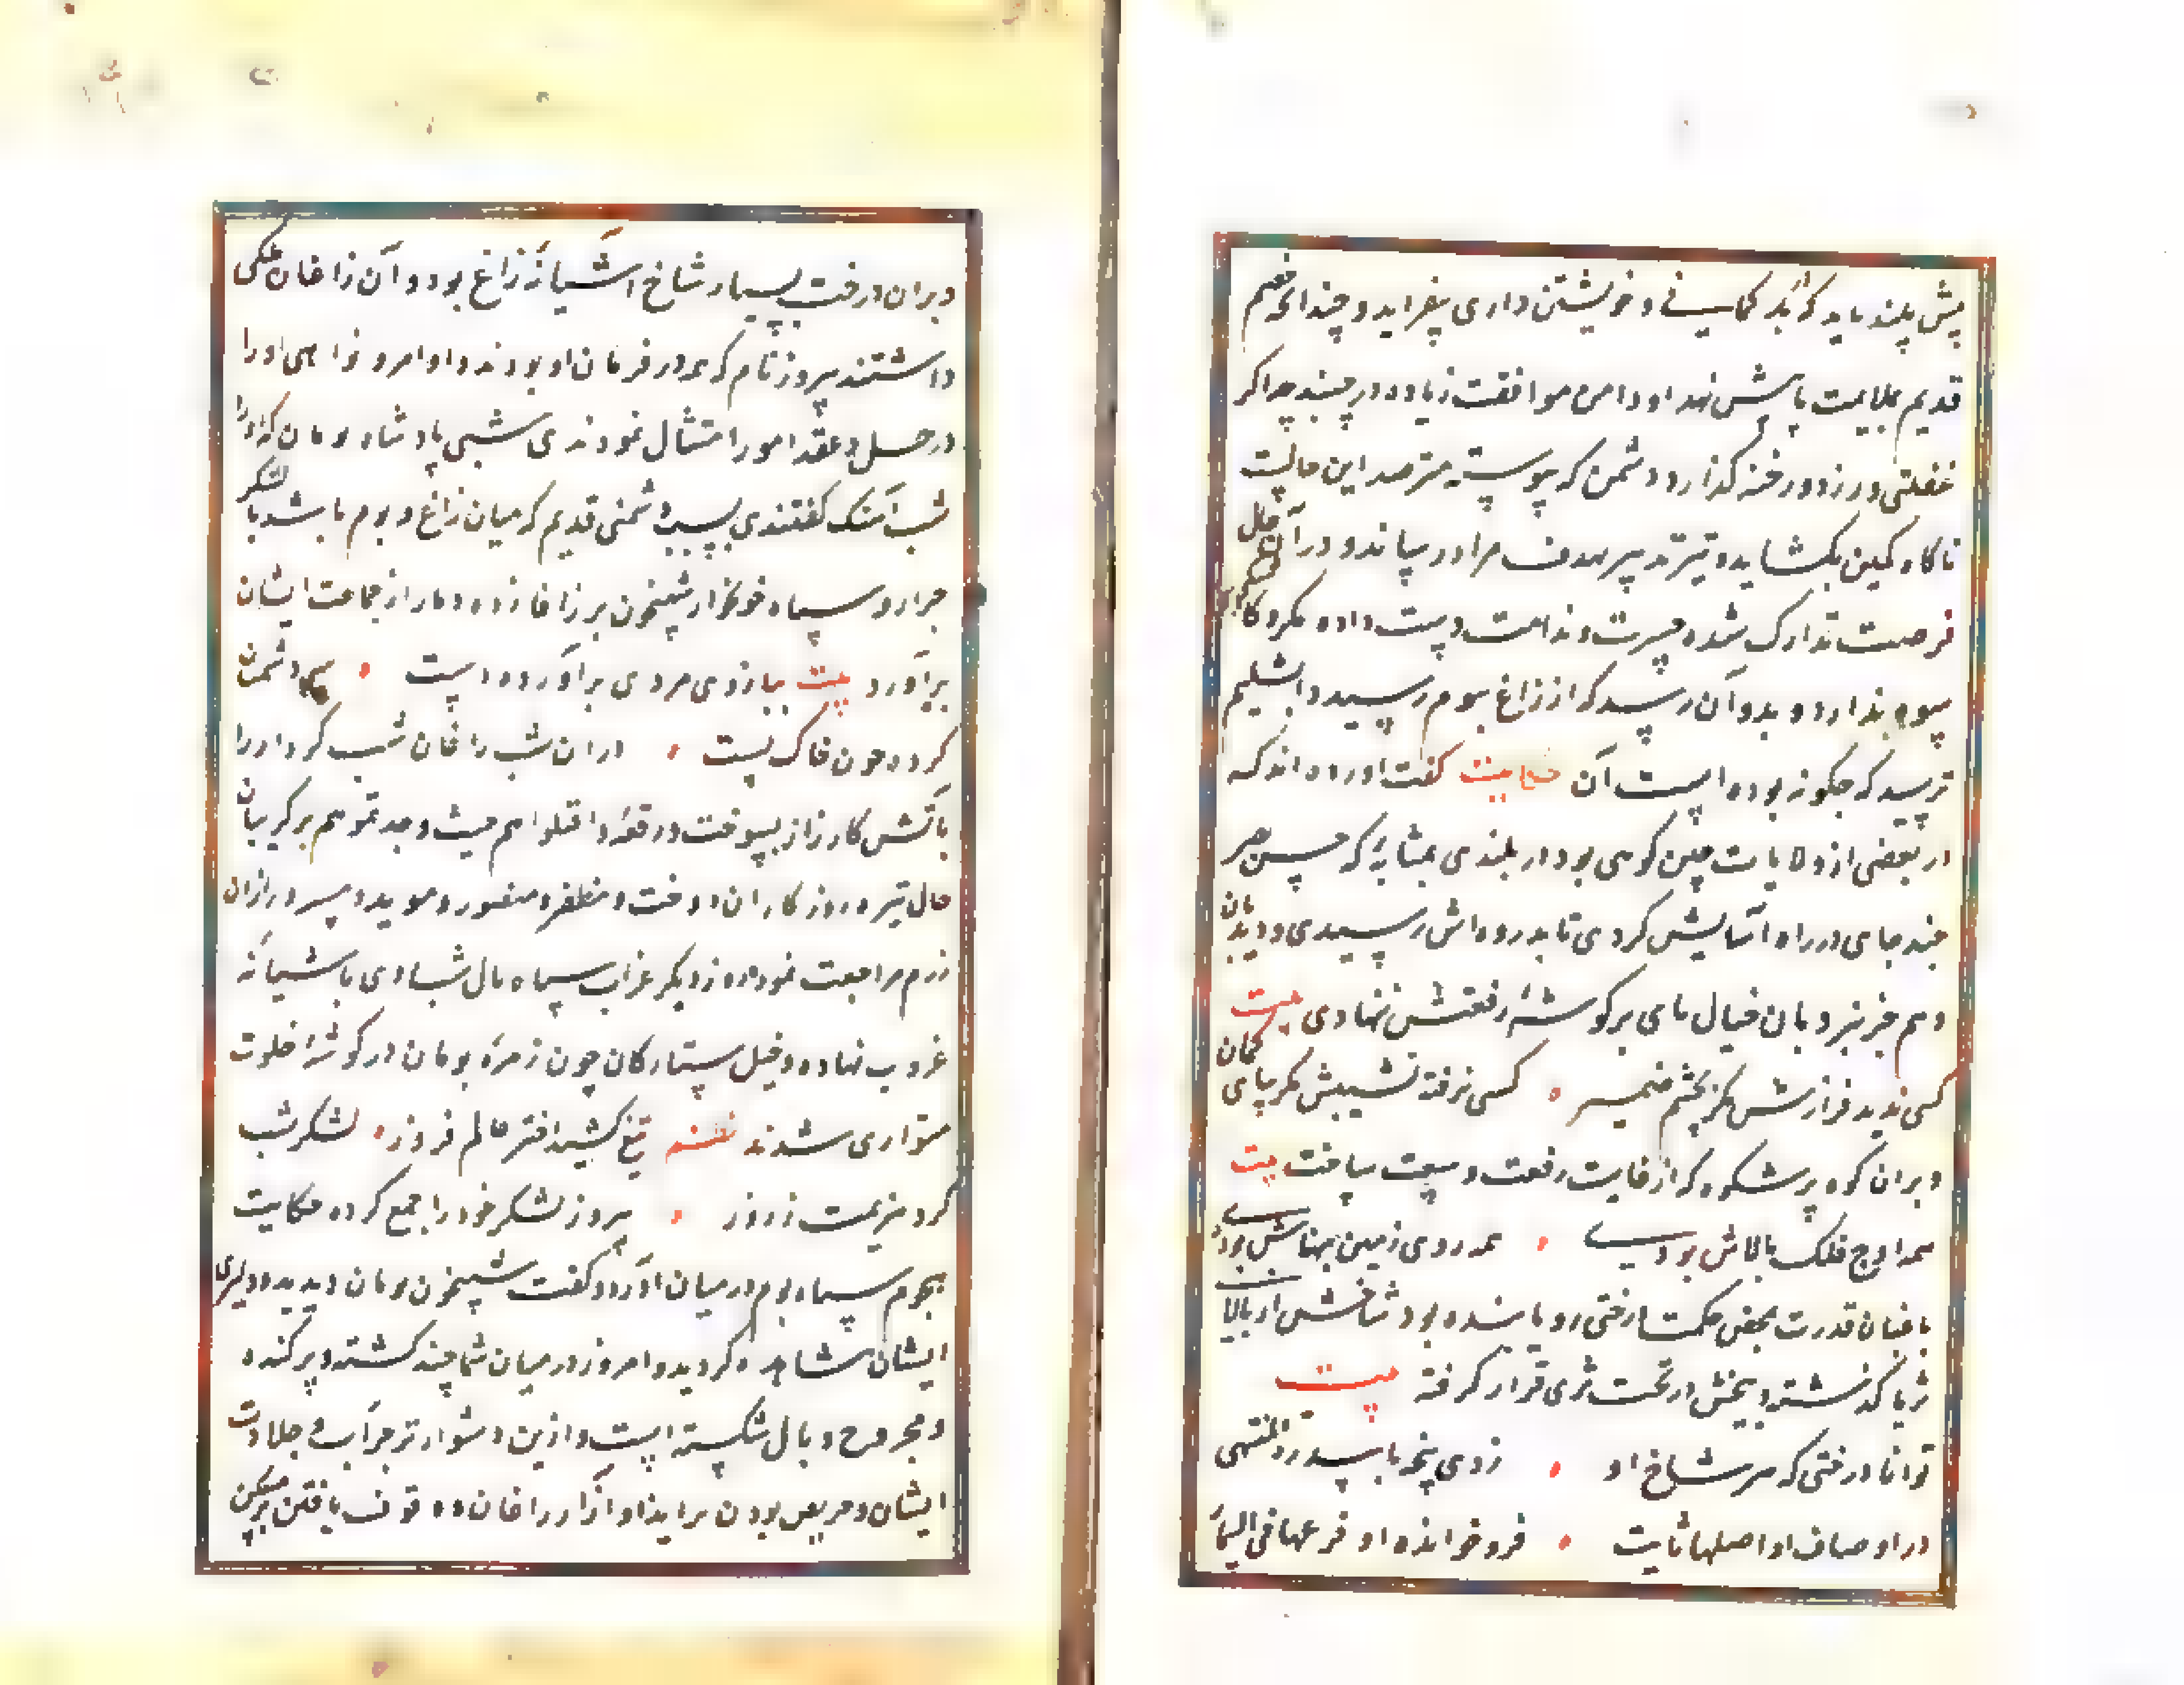 پیش بلند باید که در کمابیش و خویشتن داری بیفزاید و چندانکه خصم
قدیم ملایمت پایش نهد او دامن موافقت زیاده در چیند چه اگر
غفلتی ورزد و رخنه گذارد دشمن که پیوسته مترصد این حالست
ناکاه کمین بکشاید و تیر تدبیر بهدف مراد رساند و در آن حال
فرصت تدارک شده حسرت و ندامت دست داده مکرو کا
سود ندارد و بدو آن رسد که از زاغ ببوم رسید دابشلیم
پرسید که چکونه بوده است آن حکایت کفت آورده اند که
در بعضی از ولایات چین کوهی بود در بلندی بمثابه که حسن بصر
چند جای در راه آسایش کردی تا بدروه اش رسیدی و دیدبان
وهم جز بنردبان خیال پای بر کوشۀ رفعتش ننهادی بیت
کسی ندید فرازش مکر بچشم ضمیر • کسی نرفته نشیبش مکر بپای کمان
و بران کوه پر شکوه که از غایت رفعت و سعت ساحت بیت
همه اوج فلک بالاش بودی • همه روی زمین پهناش بودی
باغبان قدرت بمحض حکمت درختی رویانیده بود شاخش از بالای
ثریا کذشته و بیخش در تحت ثری قرار کرفته بیت
توانا درختی که هر شاخ او • زدی پنجه با سدرة المنتهی
در اوصاف او اصلها ثابت • فرو خوانده او فرعها فی السماء
و بران درخت بسیار شاخ آشیانه زاغ بود و آن زاغان ملکی
داشتند پیروز نام که همه در فرمان او بودند و اوامر و نواهی او را
در حل و عقد امور امتثال نمودندی شبی پادشاه بومان که او را
شب آهنک کفتندی بسبب دشمنی قدیم که میان زاغ و بوم باشد با لشکر
جرار و سپاه خونخوار شبیخون بر زاغان زده دمار از جماعت ایشان
برآورد بیت ببازوی مردی برآورده دست • سر دشمنان
کرده چون خاک پست • در آن شب زاغان شب کردار را
بآتش کارزار بسوخت و رقعۀ واقتلواهم حیث وجدتموهم بر کریبان
حال تیره روزکاران دوخت و مظفر و منصور و موید و مسرور از آن
رزم مراجعت نمود روز دیکر غراب سیاه بال شب روی بآشیانۀ
غروب نهاده و خیل ستارکان چون زمرۀ بومان در کوشۀ خلوت
متواری شدند نظم تیغ کشید اختر عالم فروز • لشکر شب
کرد هزیمت ز روز • پیروز لشکر خود را جمع کرده حکایت
هجوم سپاه بوم در میان آورد و کفت شبیخون بومان دیدید و دلیری
ایشان مشاهده کردید و امروز در میان شما چند کشته و پرکنده
و مجروح و بال شکسته است و ازین دشوارتر جرأت و جلادت
ایشان و حریص بودن بر ایذا و آزار زاغان و وقوف یافتن بر مسکن